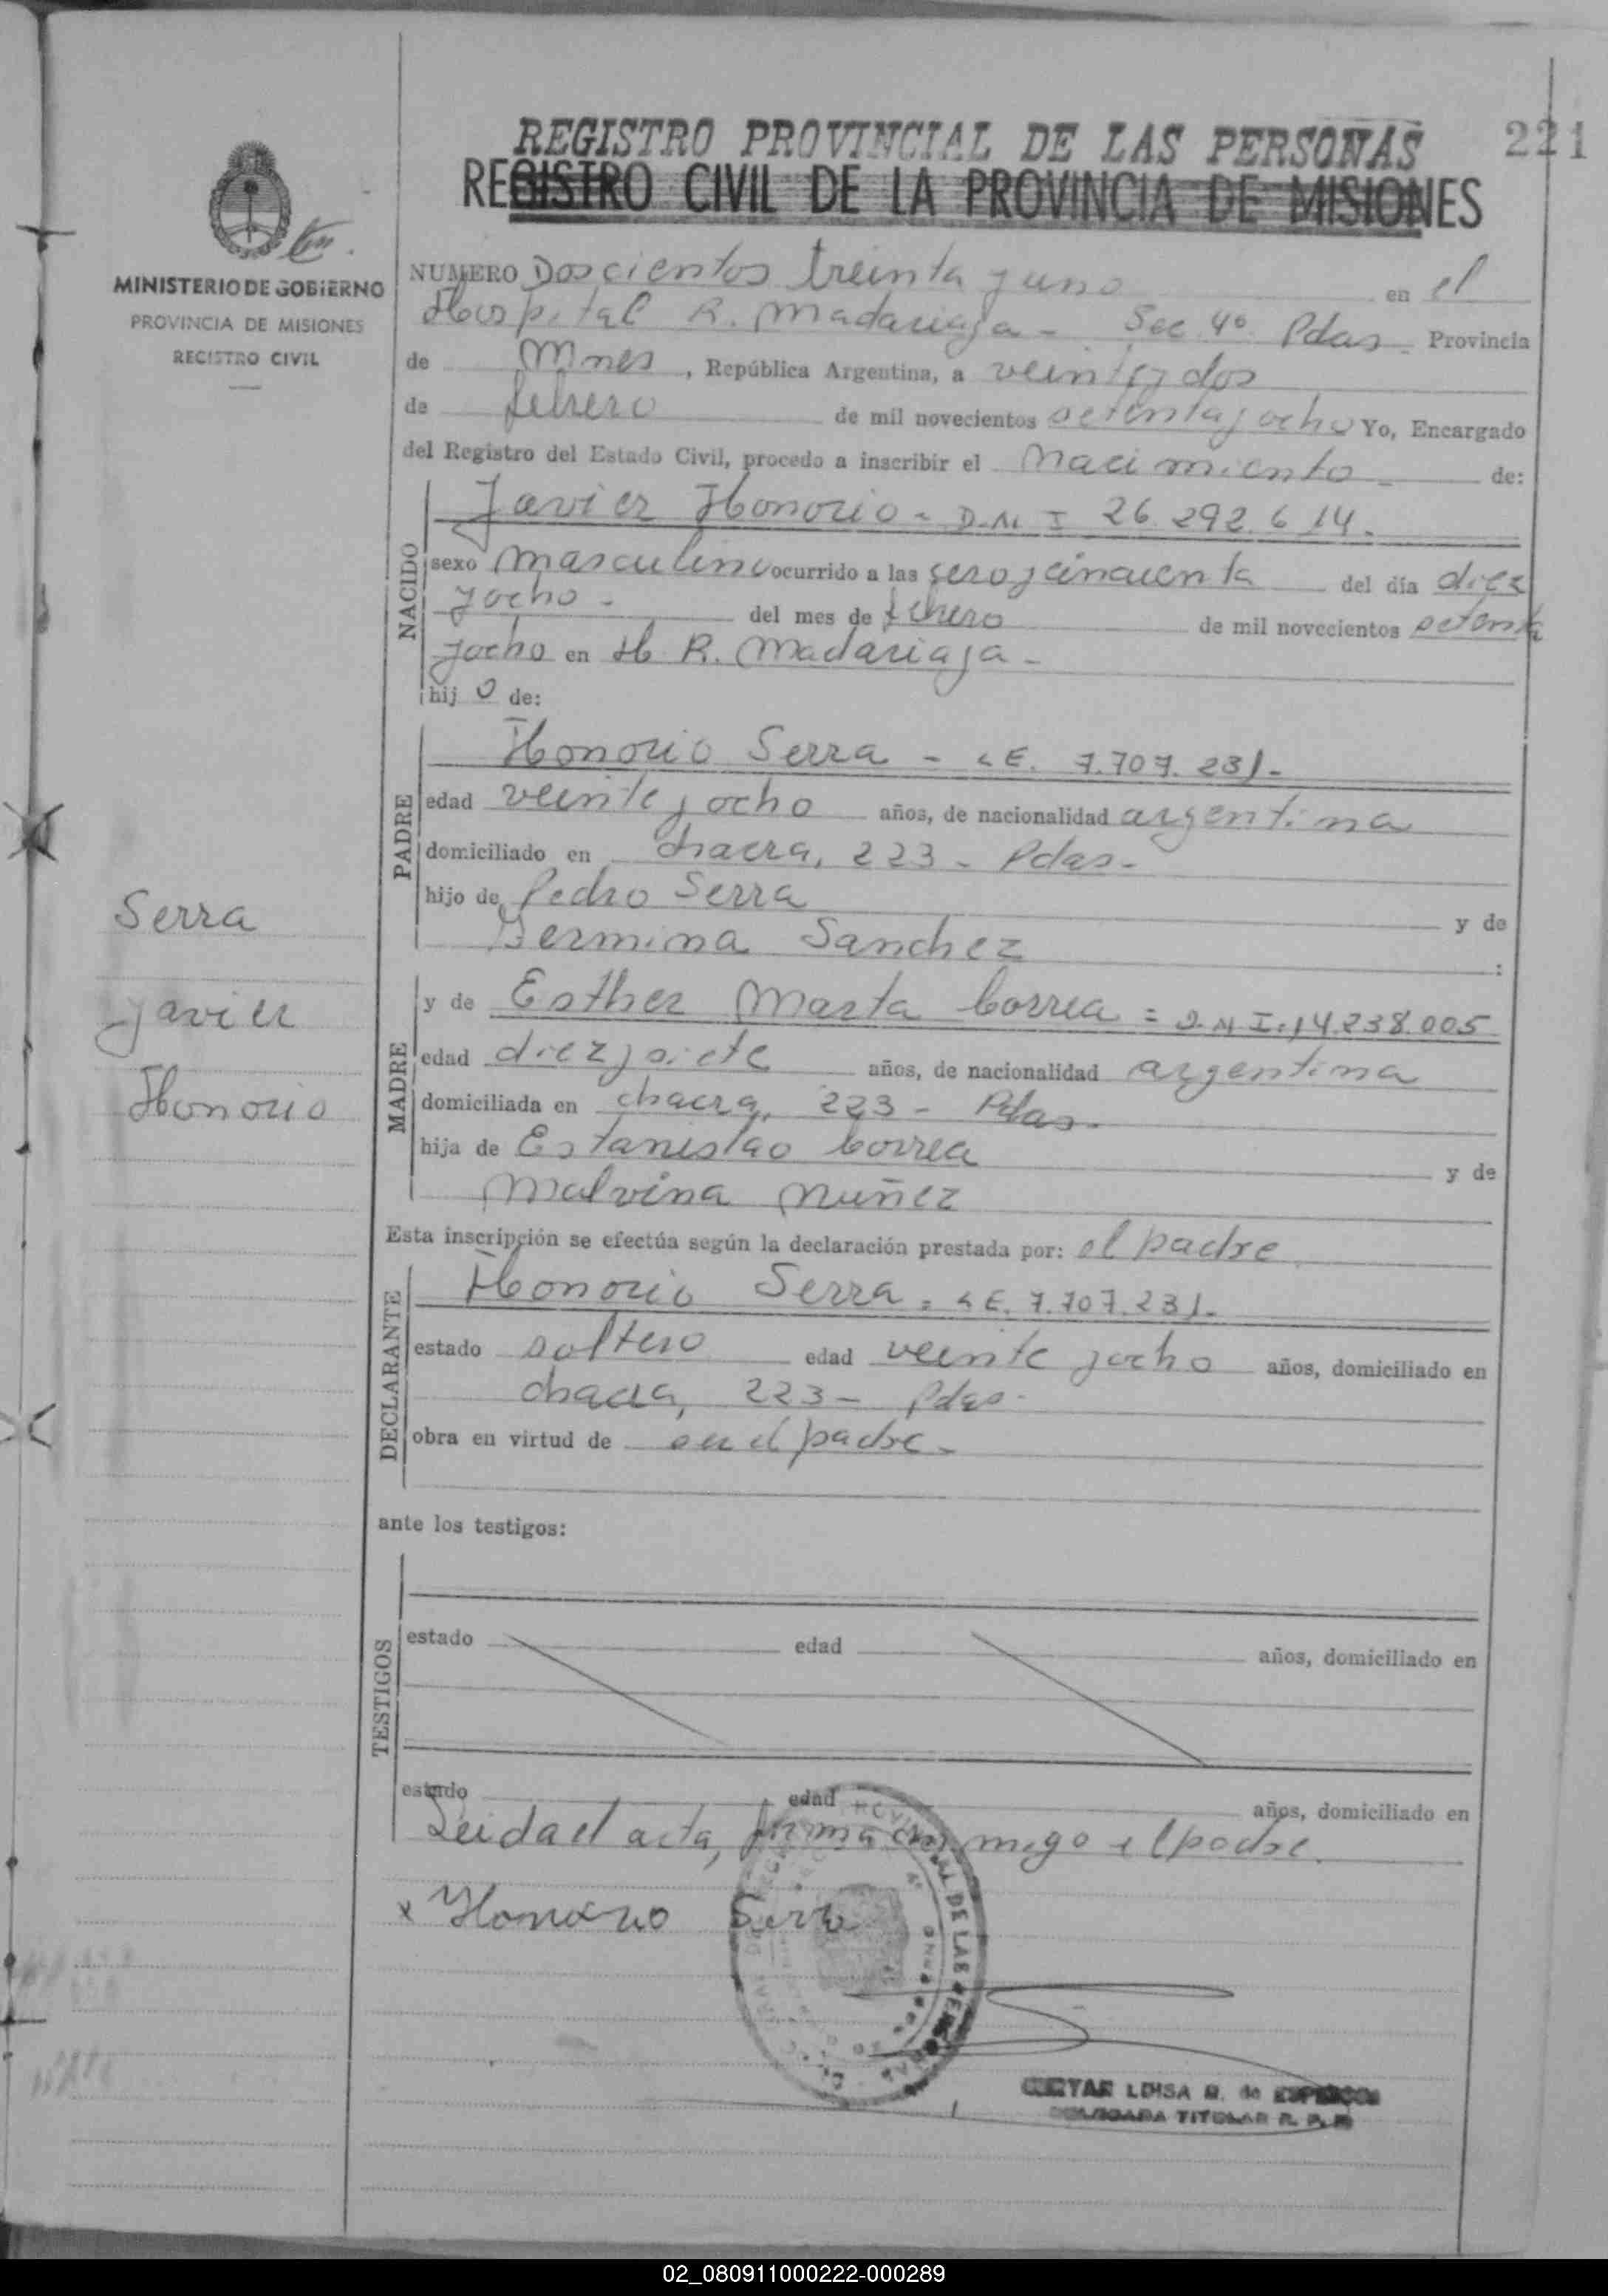 REGISTRO PROVINCIAL DE LAS PERSONAS
221
REGISTRO CIVIL DE LA PROVINCIA DE MISIONES
MINISTERIO DE GOBIERNO
PROVINCIA DE MISIONES
REGISTRO CIVIL
NUMERO Doscientos treinta y uno en el
Hospital R. Madariaga - Sec. 4º Pdas - Provincia
de Mnes, República Argentina, a veinte y dos
de febrero de mil novecientos setenta y ocho Yo, Encargado
del Registro del Estado Civil, procedo a inscribir el Nacimiento - de:
Javier Honorio - D.N.I 26.292.614.
NACIDO
sexo masculino ocurrido a las cero y cincuenta del día diez
y ocho - del mes de febrero de mil novecientos setenta
y ocho en H R. Madariaga -
hijo de:
Honorio Serra - LE. 7.707.231-
PADRE
edad veinte y ocho años, de nacionalidad argentina
domiciliado en chacra, 223 - Pdas-
hijo de Pedro Serra y de
Germina Sanchez :
Serra
Javier
Honorio
y de Esther Marta Correa = D.N.I. 14.238.005
MADRE
edad diez y siete años, de nacionalidad argentina
domiciliada en chacra, 223 - Pdas-
hija de Estanislao Correa y de
Malvina Nuñez
Esta inscripción se efectúa según la declaración prestada por: el padre
Honorio Serra = LE. 7.707.231-
DECLARANTE
estado soltero edad veinte y ocho años, domiciliado en
chacra, 223 - Pdas-
obra en virtud de ser el padre -
ante los testigos:
TESTIGOS
estado edad años, domiciliado en
estado edad años, domiciliado en
Leida el acta, firma conmigo el padre.
x Honorio Serra
LUISA M. de
TITULAR R. P. P.
02_080911000222-000289